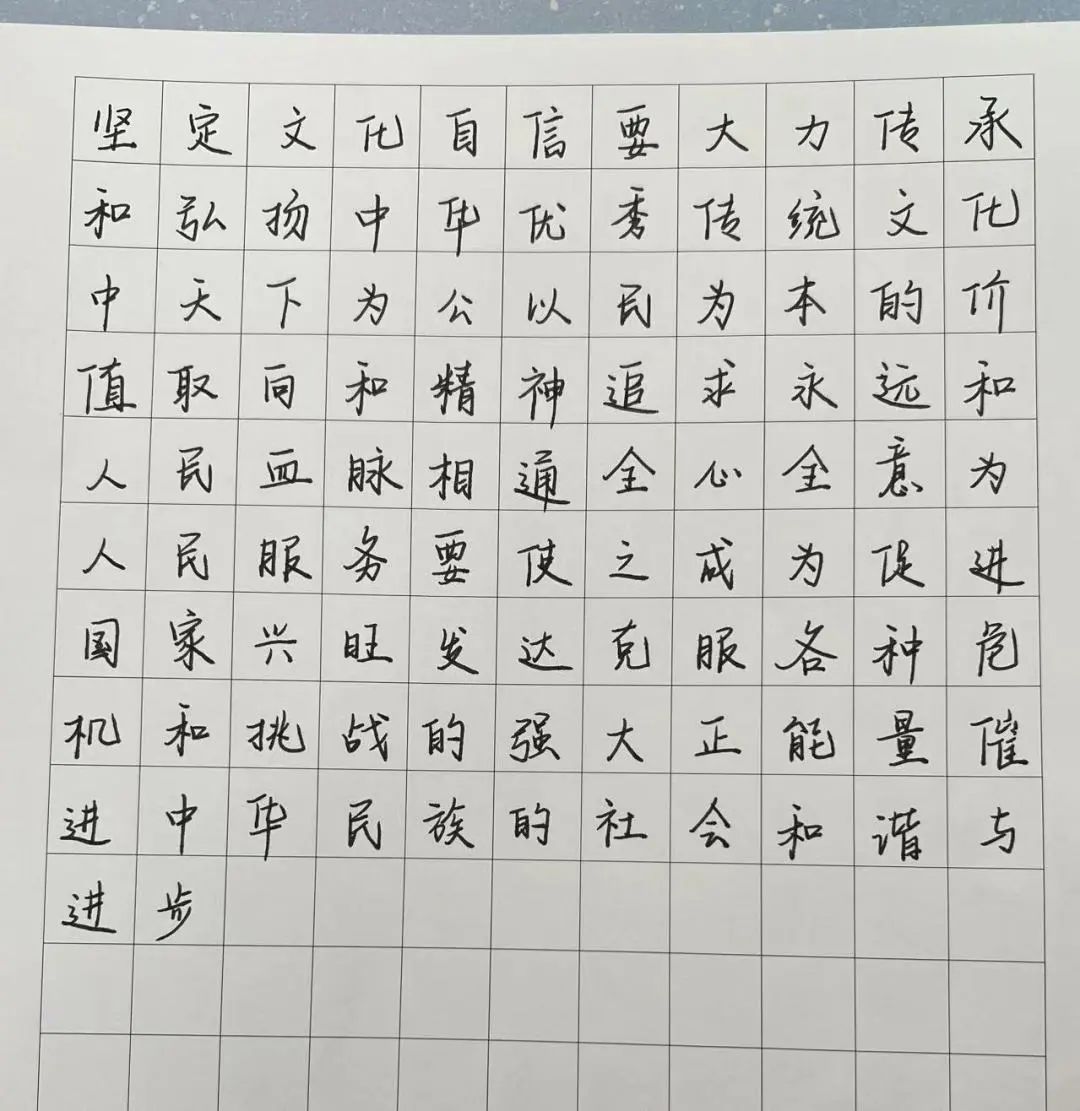 坚定文化自信要大力传承
和弘扬中华优秀传统文化
中天下为公以民为本的价
值取向和精神追求永远和
人民血脉相通全心全意为
人民服务要使之成为促进
国家兴旺发达克服各种危
机和挑战的强大正能量催
进中华民族的社会和谐与
进步